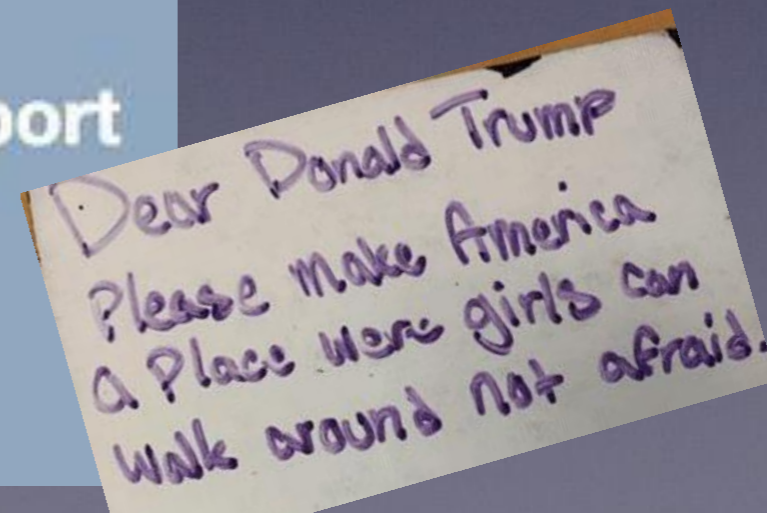 port
Dear Donald Trump
Please make America
a Place were girls can
walk around not afraid.